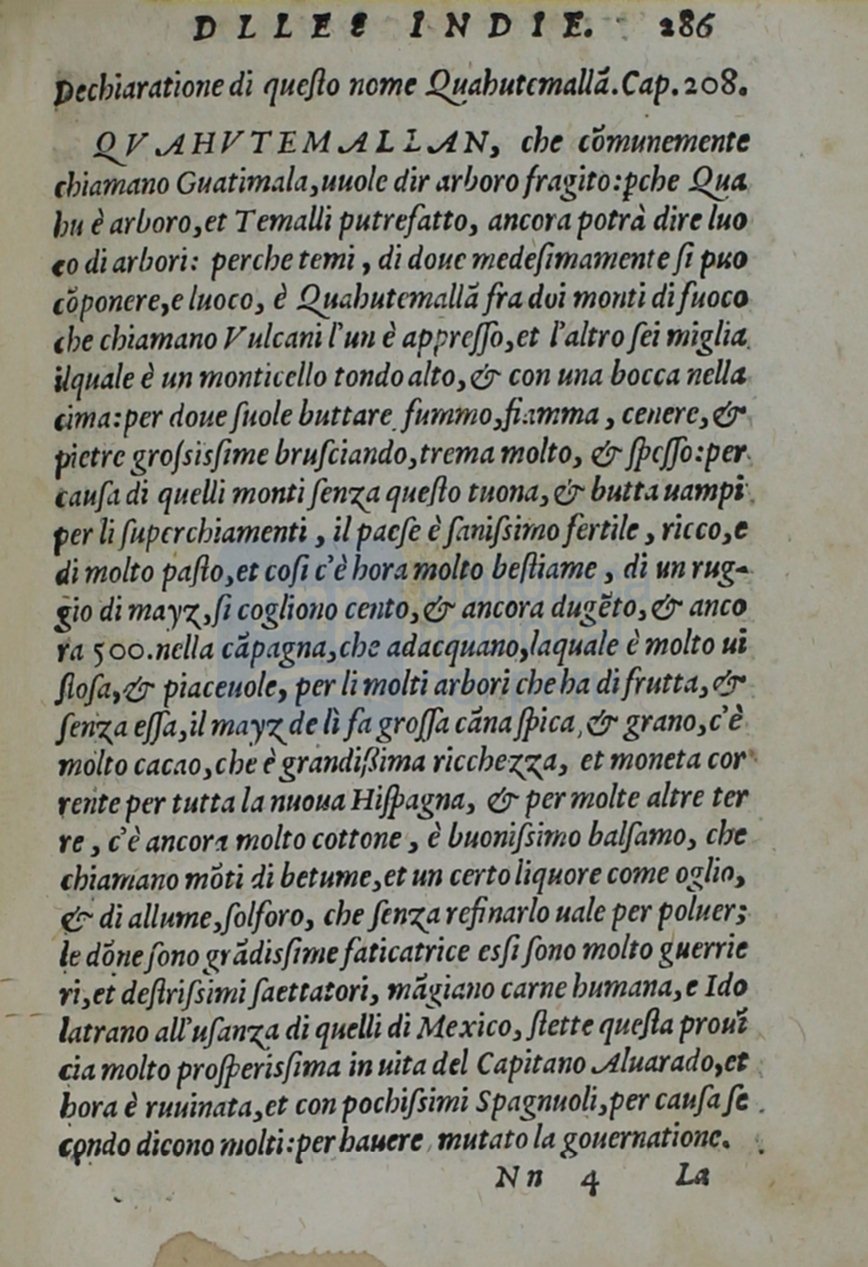 DLLES INDIE. 286
Dechiaratione di queſto nome Quahutemallã. Cap. 208.
QVAHVTEMALLAN, che cõmunemente
chiamano Guatimala, uuole dir arboro fragito: pche Qua
hu è arboro, et Temalli putrefatto, ancora potrà dire luo
co di arbori: perche temi, di doue medeſimamente ſi puo
cõponere, e luoco, è Quahutemallã fra doi monti di fuoco
che chiamano Vulcani l'un è appreſſo, et l'altro ſei miglia
ilquale è un monticello tondo alto, & con una bocca nella
cima: per doue ſuole buttare fummo, fiamma, cenere, &
pietre groſsisſime bruſciando, trema molto, & ſpeſſo: per
cauſa di quelli monti ſenza queſto tuona, & butta uampi
per li ſuperchiamenti, il paeſe è ſaniſsimo fertile, ricco, e
di molto paſto, et coſi c'è hora molto beſtiame, di un rug-
gio di mayz, ſi cogliono cento, & ancora dugẽto, & anco
ra 500. nella cãpagna, che adacquano, laquale è molto ui
ſtoſa, & piaceuole, per li molti arbori che ha di frutta, &
ſenza eſſa, il mayz de lì fa groſſa cãna ſpica, & grano, c'è
molto cacao, che è grandißima ricchezza, et moneta cor
rente per tutta la nuoua Hiſpagna, & per molte altre ter
re, c'è ancora molto cottone, è buoniſsimo balſamo, che
chiamano mõti di betume, et un certo liquore come oglio,
& di allume, ſolforo, che ſenza refinarlo uale per poluer;
le dõne ſono grãdisſime faticatrice esſi ſono molto guerrie
ri, et deſtriſsimi ſaettatori, mãgiano carne humana, e Ido
latrano all'uſanza di quelli di Mexico, ſtette queſta prouĩ
cia molto proſperisſima in uita del Capitano Aluarado, et
hora è ruuinata, et con pochiſsimi Spagnuoli, per cauſa ſe
condo dicono molti: per hauere mutato la gouernatione.
Nn 4 La